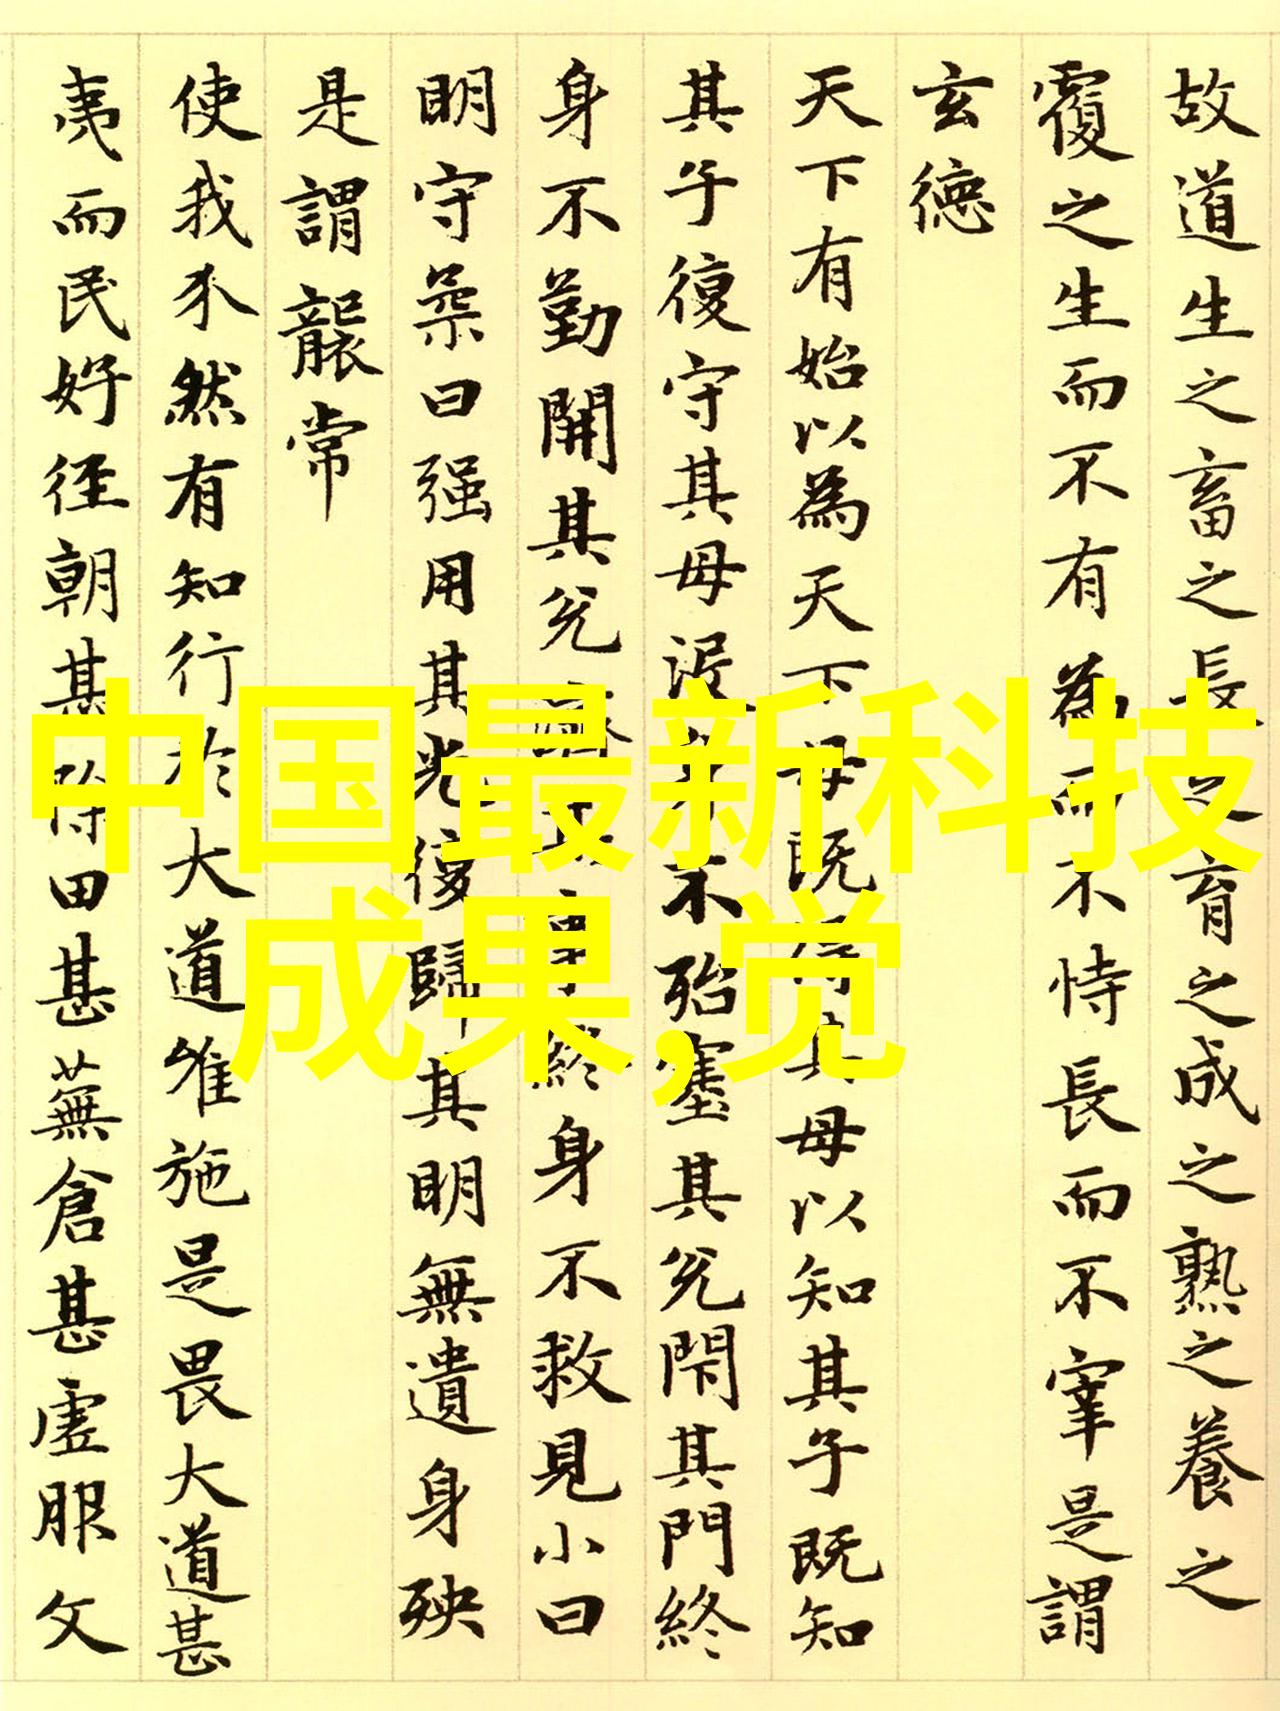 故道生之畜之長之育之成之熟之養之
覆之生而不有為而不恃長而不宰是謂
玄德
天下有始以為天下母既得其母以知其子既知
其子復守其母没身不殆塞其兌閇其門終
身不勤開其兌濟其事終身不救見小曰
明守柔曰强用其光復歸其明無遺身殃
是謂襲常
使我介然有知行於大道唯施是畏大道甚
夷而民好徑朝甚除田甚蕪倉甚虚服文
中国最新科技
成果,觉